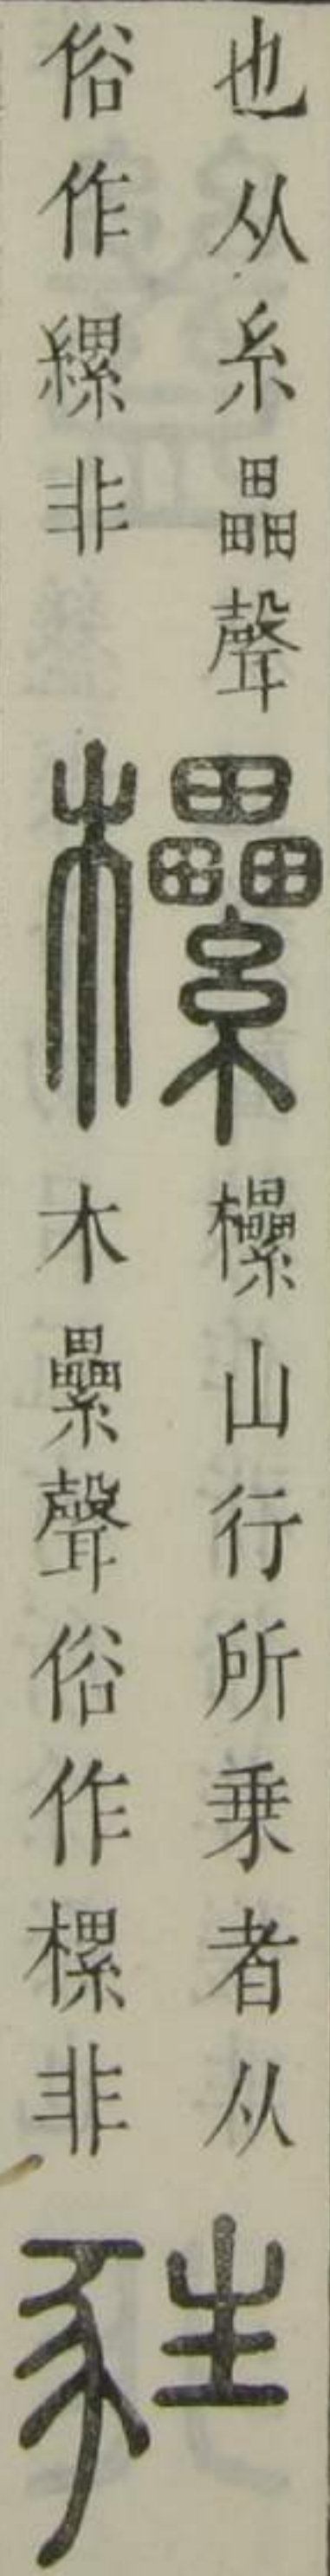 也从糸畾聲
俗作縲非
欙
欙山行所乗者从
木纍聲俗作樏非